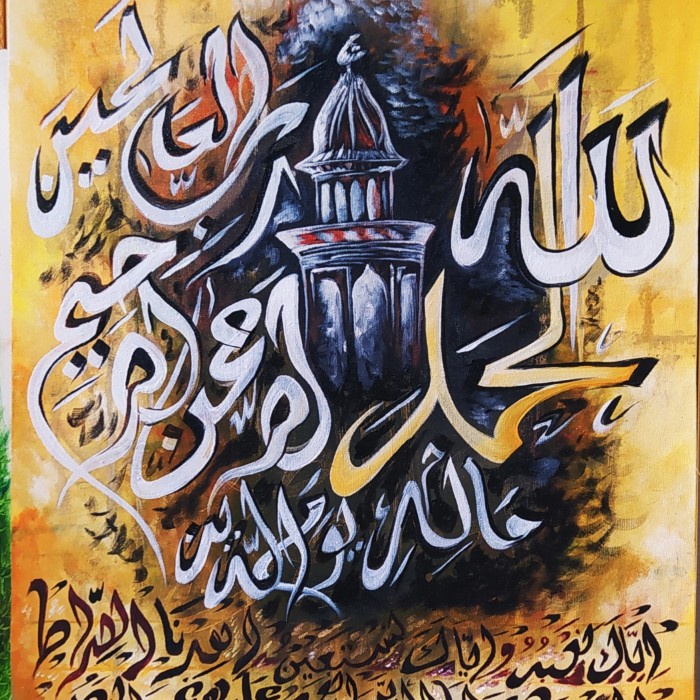 الحمد لله
رب العالمين
الرحمن الرحيم
مالك يوم الدين
اياك نعبد واياك نستعين اهدنا الصراط